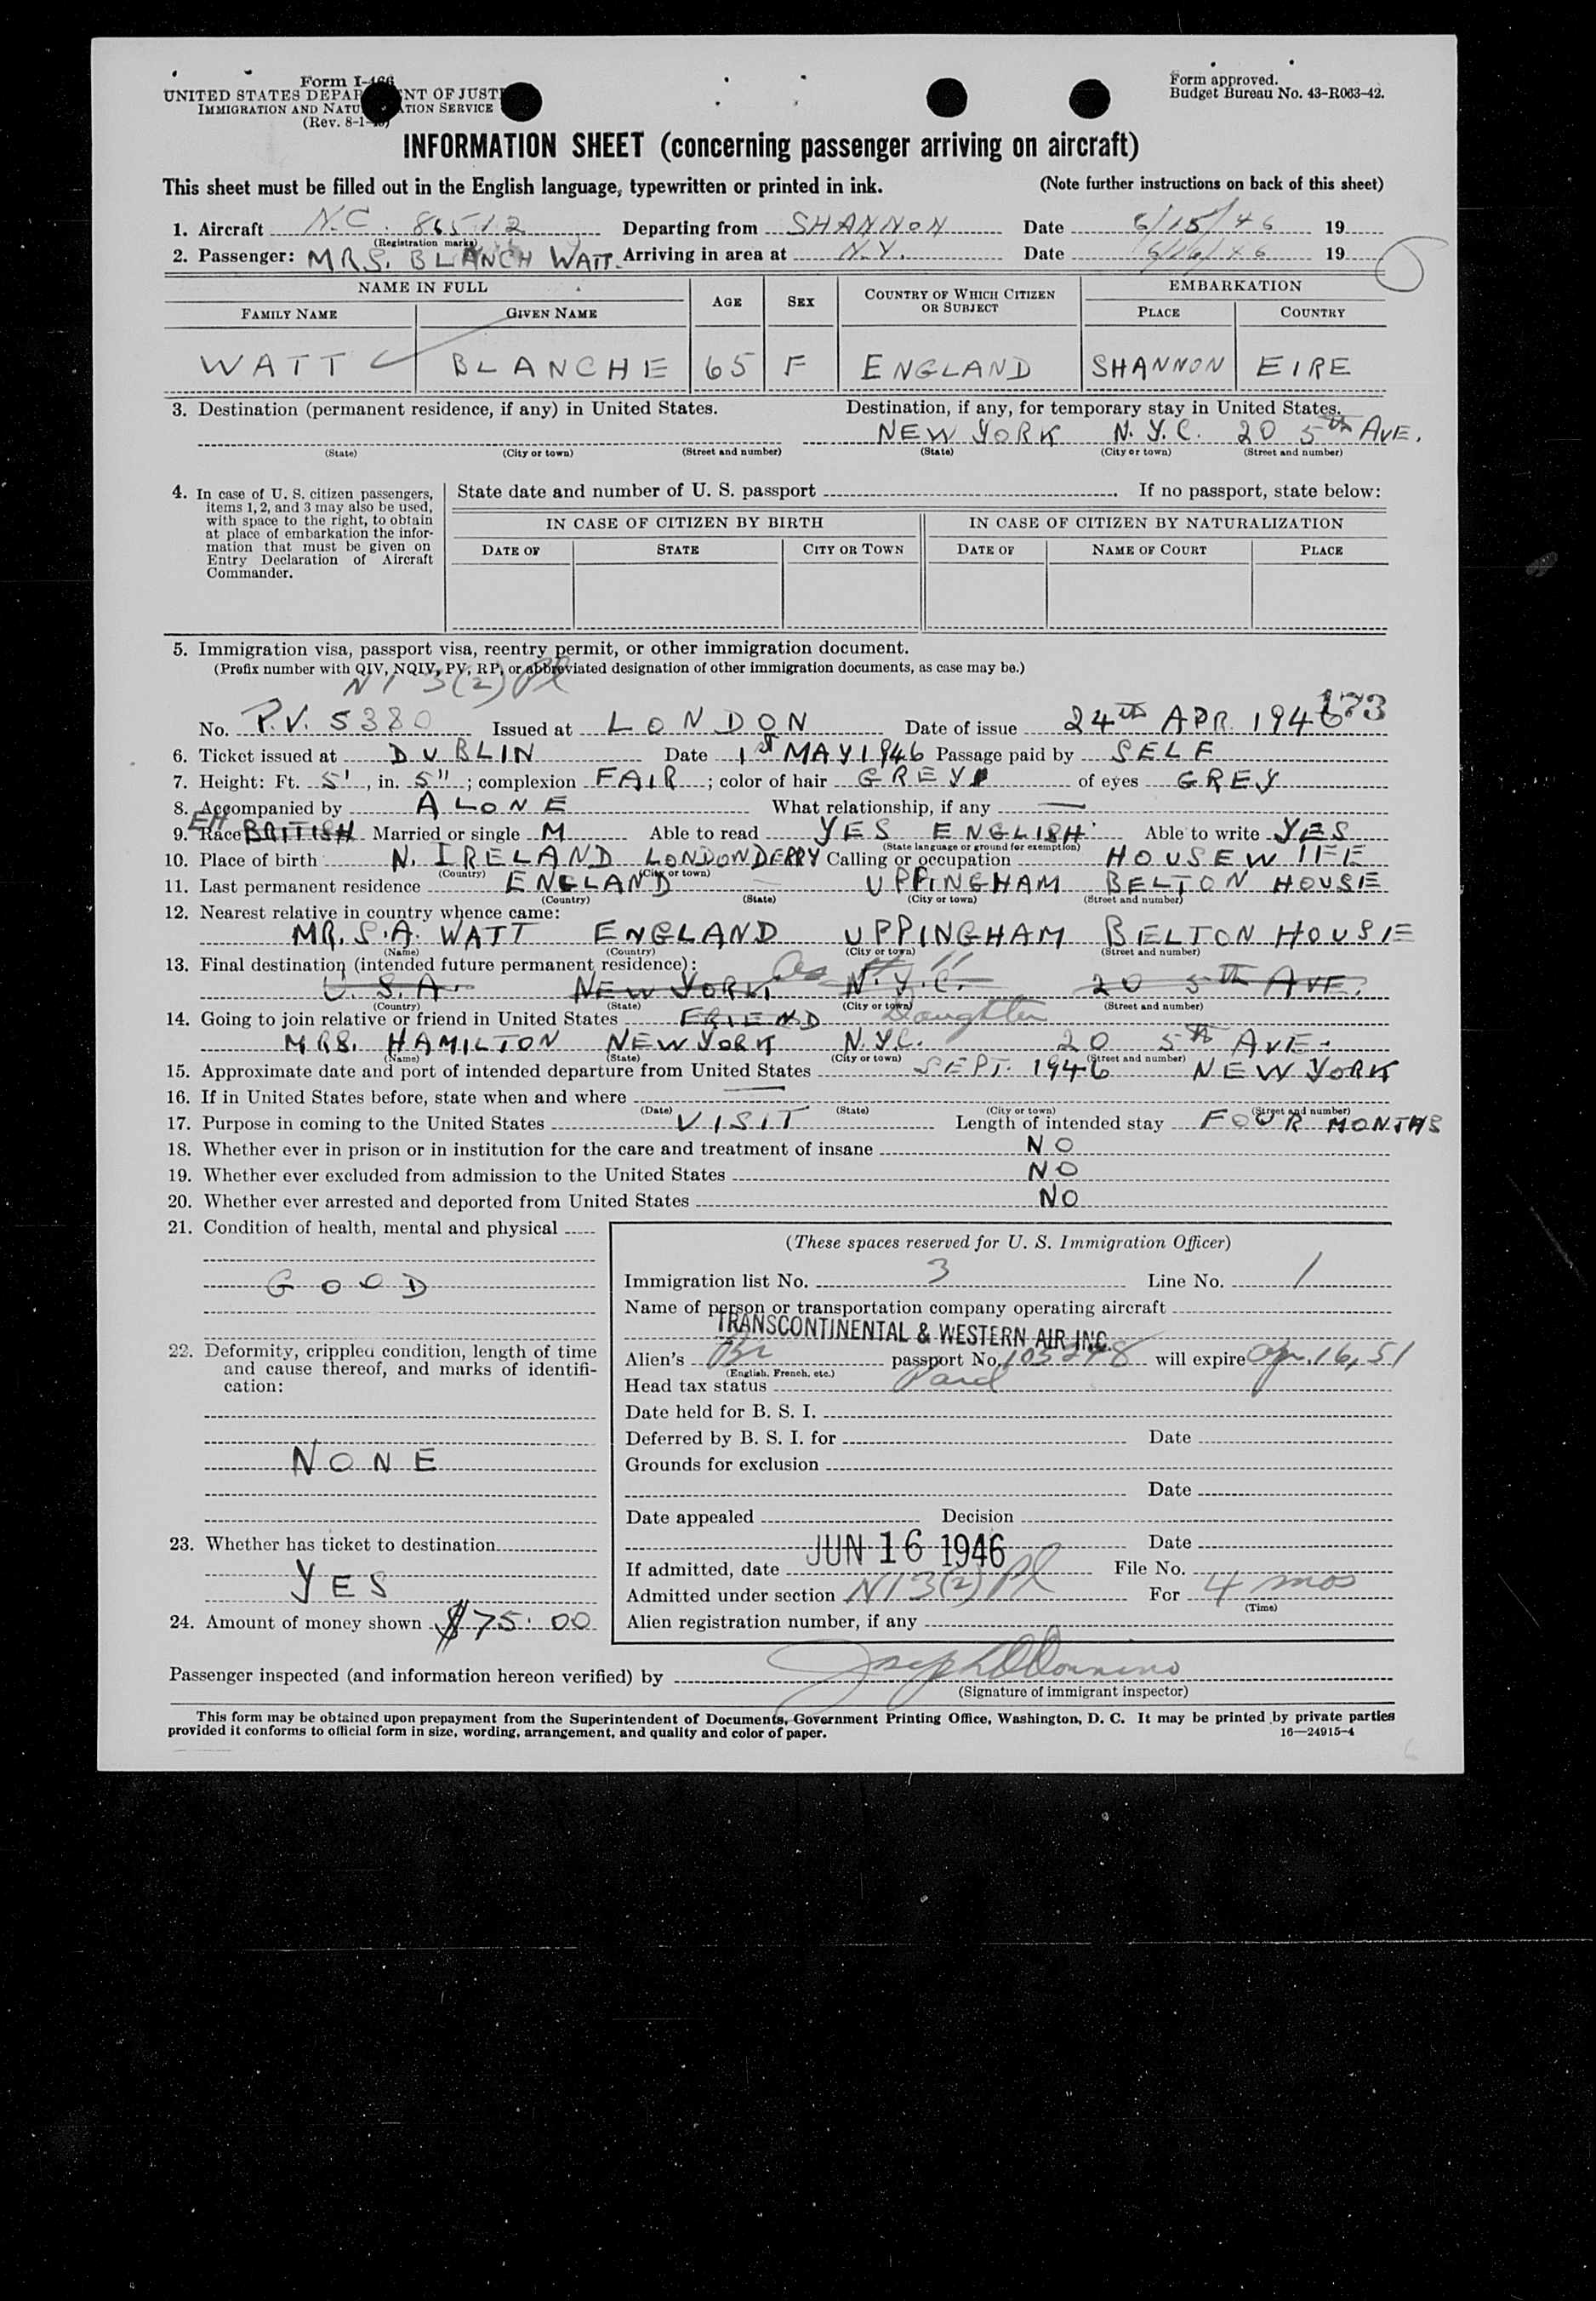 Form I-466
UNITED STATES DEPARTMENT OF JUSTICE
IMMIGRATION AND NATURALIZATION SERVICE
(Rev. 8-1-
Form approved.
Budget Bureau No. 43-R063-42.
INFORMATION SHEET (concerning passenger arriving on aircraft)
This sheet must be filled out in the English language, typewritten or printed in ink. (Note further instructions on back of this sheet)
1. Aircraft N.C. 86512 Departing from SHANNON Date 6/15/46 19
(Registration marks)
2. Passenger: MRS. BLANCH WATT. Arriving in area at N.Y. Date 6/16/46 19
NAME IN FULL AGE SEX COUNTRY OF WHICH CITIZEN OR SUBJECT EMBARKATION
FAMILY NAME GIVEN NAME PLACE COUNTRY
WATT BLANCHE 65 F ENGLAND SHANNON EIRE
3. Destination (permanent residence, if any) in United States. Destination, if any, for temporary stay in United States.
NEW YORK N.Y.C. 20 5th AVE.
(State) (City or town) (Street and number) (State) (City or town) (Street and number)
4. In case of U. S. citizen passengers, items 1, 2, and 3 may also be used, with space to the right, to obtain at place of embarkation the information that must be given on Entry Declaration of Aircraft Commander.
State date and number of U. S. passport . If no passport, state below:
IN CASE OF CITIZEN BY BIRTH IN CASE OF CITIZEN BY NATURALIZATION
DATE OF STATE CITY OR TOWN DATE OF NAME OF COURT PLACE
5. Immigration visa, passport visa, reentry permit, or other immigration document.
(Prefix number with QIV, NQIV, PV, RP, or abbreviated designation of other immigration documents, as case may be.)
NI 3(2) Pl
173
No. P.V. 5380 Issued at LONDON Date of issue 24th APR. 1946
6. Ticket issued at DUBLIN Date 1st MAY 1946 Passage paid by SELF
7. Height: Ft. 5', in. 5"; complexion FAIR; color of hair GREY of eyes GREY
8. Accompanied by ALONE What relationship, if any —
EH
9. Race BRITISH Married or single M Able to read YES ENGLISH Able to write YES
(State language or ground for exemption)
10. Place of birth N. IRELAND LONDONDERRY Calling or occupation HOUSEWIFE
(Country) (City or town)
11. Last permanent residence ENGLAND — UPPINGHAM BELTON HOUSE
(Country) (State) (City or town) (Street and number)
12. Nearest relative in country whence came:
MR. S.A. WATT ENGLAND UPPINGHAM BELTON HOUSE
(Name) (Country) (City or town) (Street and number)
13. Final destination (intended future permanent residence): as # 11
U.S.A. NEW YORK. N.Y.C. 20 5th AVE.
(Country) (State) (City or town) (Street and number)
14. Going to join relative or friend in United States FRIEND Daughter
MRS. HAMILTON NEW YORK N.Y.C. 20 5th AVE.
(Name) (State) (City or town) (Street and number)
15. Approximate date and port of intended departure from United States SEPT. 1946 NEW YORK
16. If in United States before, state when and where —
(Date) (State) (City or town) (Street and number)
17. Purpose in coming to the United States VISIT Length of intended stay FOUR MONTHS
18. Whether ever in prison or in institution for the care and treatment of insane NO
19. Whether ever excluded from admission to the United States NO
20. Whether ever arrested and deported from United States NO
21. Condition of health, mental and physical
GOOD
22. Deformity, crippled condition, length of time and cause thereof, and marks of identification:
NONE
23. Whether has ticket to destination
YES
24. Amount of money shown $75.00
(These spaces reserved for U. S. Immigration Officer)
Immigration list No. 3 Line No. 1
Name of person or transportation company operating aircraft
TRANSCONTINENTAL & WESTERN AIR INC.
Alien's Br passport No. 105248 will expire Apr. 16, 51
(English, French, etc.)
Head tax status Paid
Date held for B. S. I.
Deferred by B. S. I. for Date
Grounds for exclusion
Date
Date appealed Decision
Date
If admitted, date JUN 16 1946 File No.
Admitted under section NI 3(2) Pl For 4 mos
(Time)
Alien registration number, if any
Passenger inspected (and information hereon verified) by
(Signature of immigrant inspector)
This form may be obtained upon prepayment from the Superintendent of Documents, Government Printing Office, Washington, D. C. It may be printed by private parties
provided it conforms to official form in size, wording, arrangement, and quality and color of paper. 16—24915-4